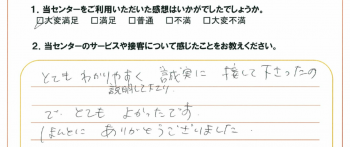 1. 当センターをご利用いただいた感想はいかがでしたでしょうか。
☑大変満足 □満足 □普通 □不満 □大変不満
2. 当センターのサービスや接客について感じたことをお教えください。
とても わかりやすく 誠実に 接して下さったの
説明しており
で とても よかったです
ほんとに ありがとうございました.